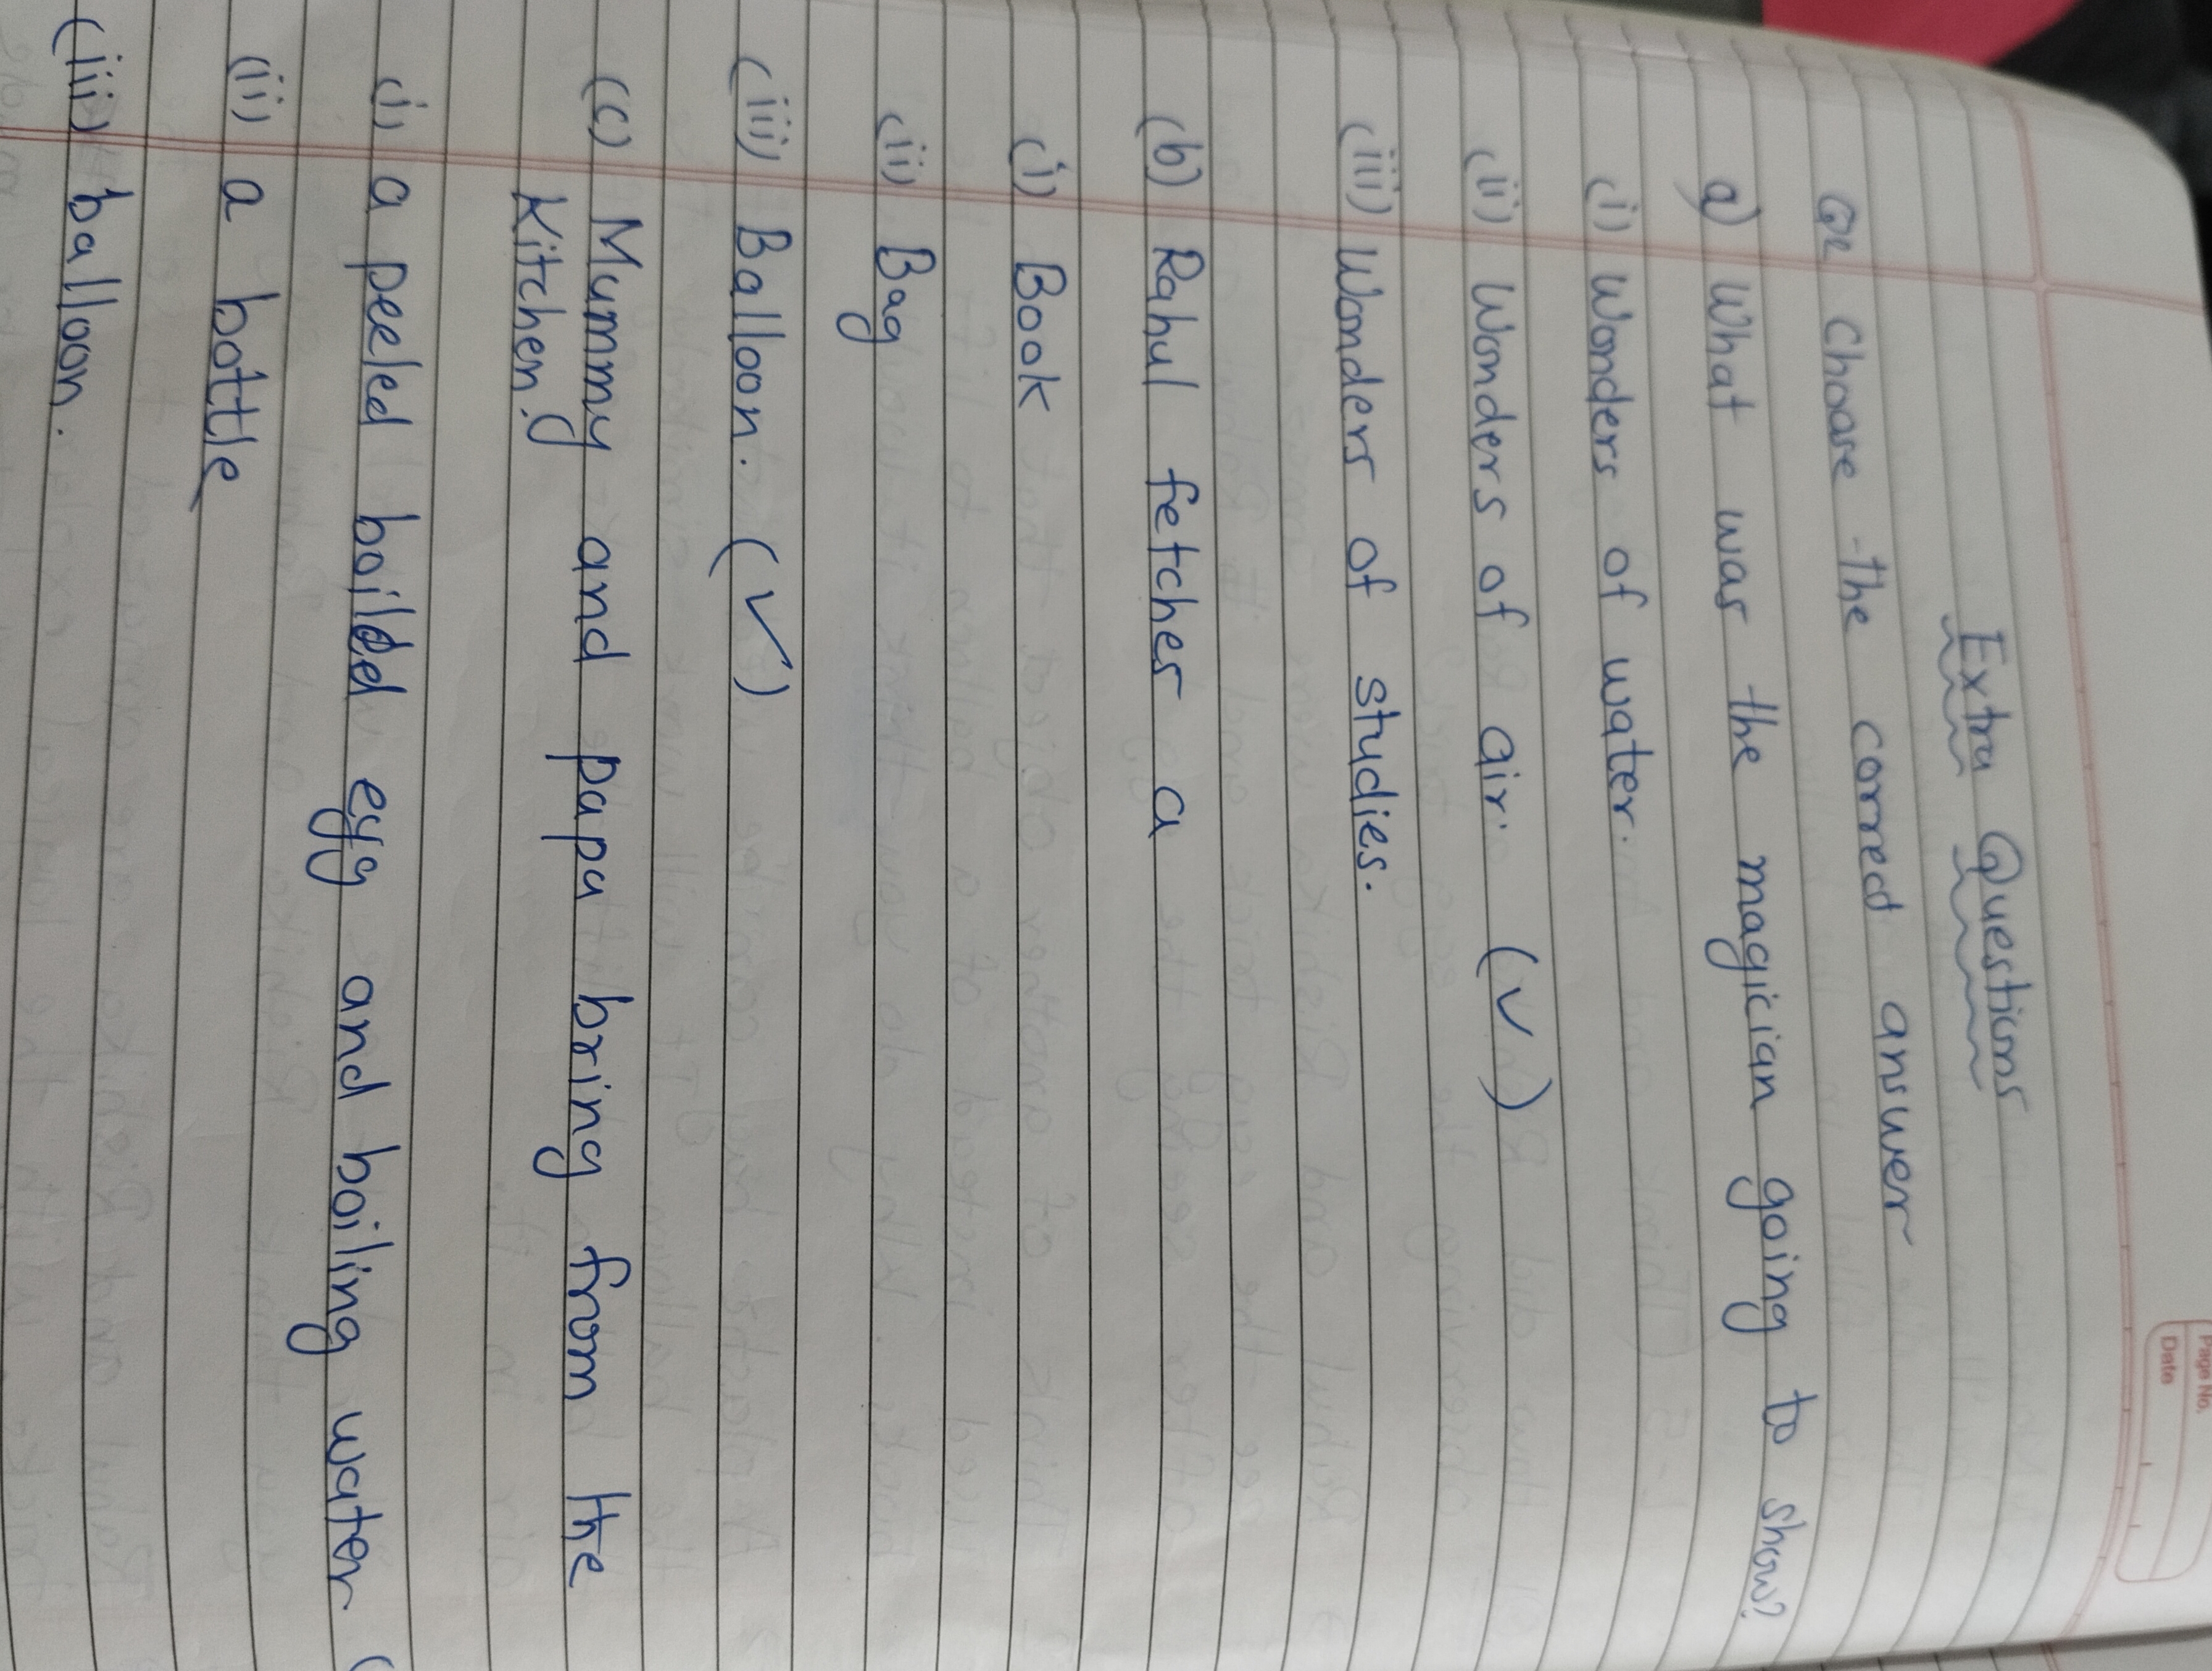 Page No.
Date
Extra Questions
Q1. Choose the correct answer
a) What was the magician going to show?
(i) Wonders of water.
(ii) Wonders of air. (✓)
(iii) Wonders of studies.
(b) Rahul fetches a
(i) Book
(ii) Bag
(iii) Balloon. (✓)
(c) Mummy and papa bring from the
Kitchen.
(i) a peeled boiled egg and boiling water (
(ii) a bottle
(iii) balloon.